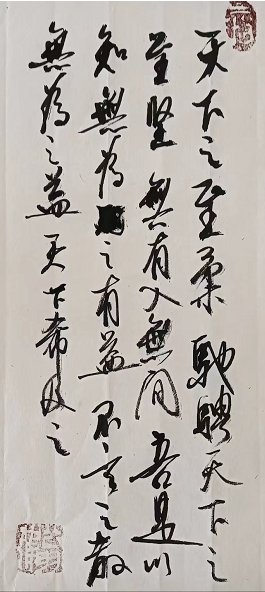 天下之至柔馳騁天下之
至堅無有入無間吾是以
知無為之有益不言之教
無為之益天下希及之